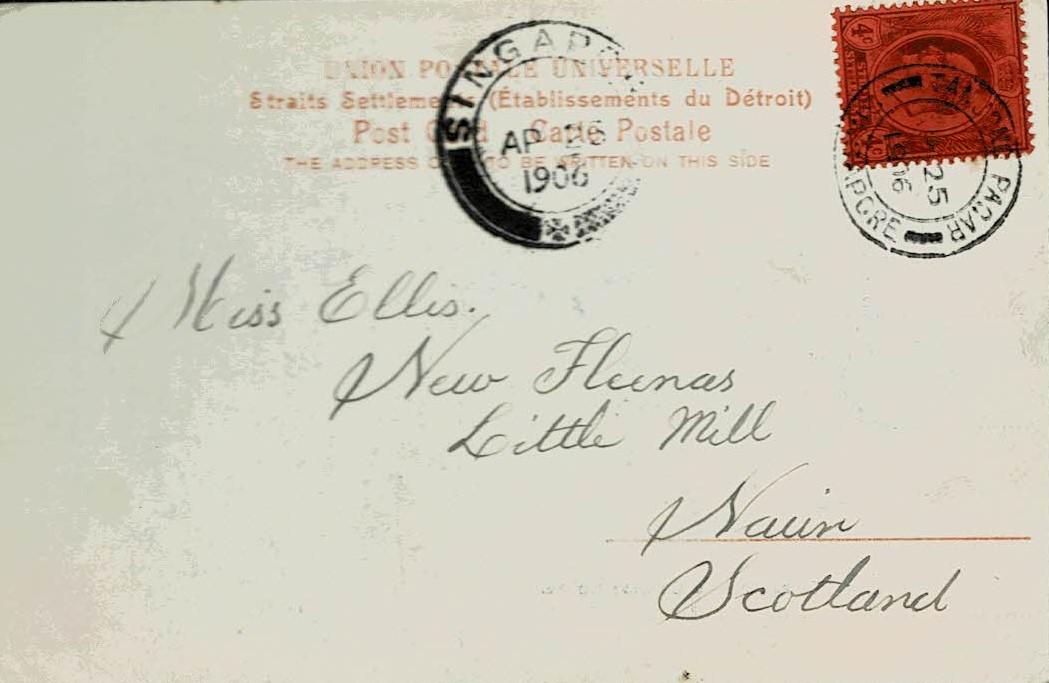 UNION POSTALE UNIVERSELLE
Straits Settlements (Établissements du Détroit)
Post Card Carte Postale
THE ADDRESS ONLY TO BE WRITTEN ON THIS SIDE
SINGAPORE
AP 26
1906
4c
TANJONG PAGAR
25
Miss Ellis.
New Fleenas
Little Mill
Nairn
Scotland